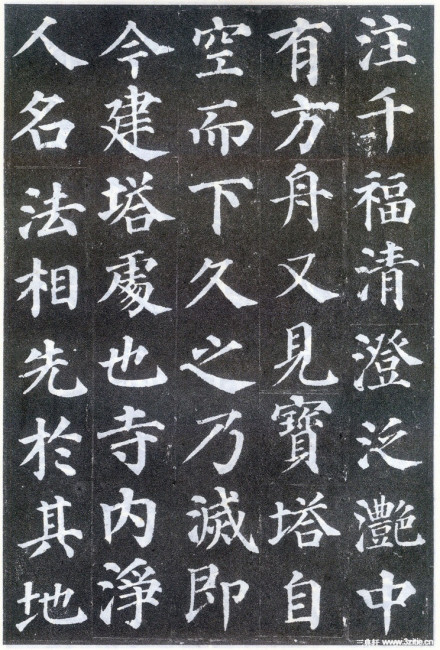 注千福清澄泛灔中
有方舟又見寶塔自
空而下久之乃滅即
今建塔處也寺內淨
人名法相先於其地
三自轩 www.3zitie.cn